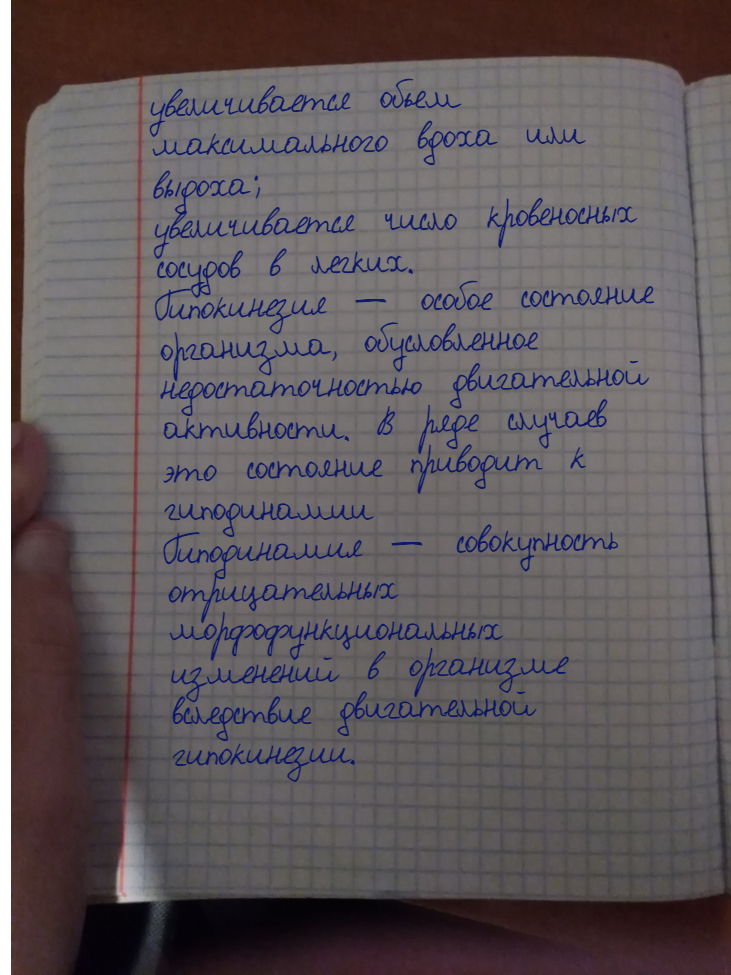 увеличивается обьем
максимального вдоха или
выдоха;
увеличивается число кровеносных
сосудов в легких.
Гипокинезия — особое состояние
организма, обусловленное
недостаточностью двигательной
активности. В ряде случаев
это состояние приводит к
гиподинамии
Гиподинамия — совокупность
отрицательных
морфофункциональных
изменений в организме
вследствие двигательной
гипокинезии.